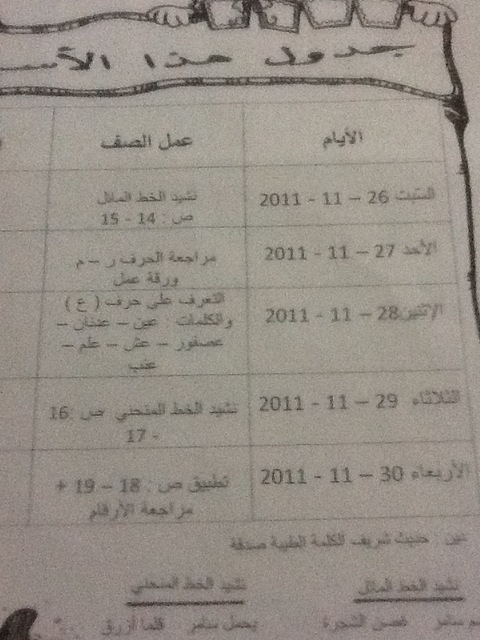 جدول هذا الأسـ
الأيام عمل الصف
السبت 26 – 11 - 2011 نشيد الخط المائل
ص : 14 - 15
الأحد 27 – 11 - 2011 مراجعة الحرف ر – م
ورقة عمل
الإثنين28 – 11 - 2011 التعرف على حرف ( ع )
والكلمات : عين – عدنان –
عصفور – عش – علم –
عنب
الثلاثاء 29 – 11 - 2011 نشيد الخط المنحني ص :16
- 17
الأربعاء 30 – 11 - 2011 تطبيق ص : 18 – 19 +
مراجعة الأرقام
دين : حديث شريف الكلمة الطيبة صدقة
نشيد الخط المائل نشيد الخط المنحني
سم سامر غصن الشجرة يحمل سامر قلما أزرق